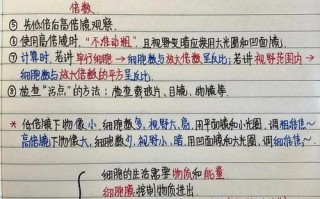 倍数
⑤ 先低倍后高倍镜观察.
⑥ 使用高倍镜时, "不准动粗", 且视野变暗应换用大光圈和凹面镜.
⑦ 计算时, 若讲单行细胞 → 细胞数与放大倍数呈反比; 若讲视野范围内 →
细胞数与放大倍数的平方呈反比.
⑧ 检查"污点"的方法: 检查载玻片、目镜、物镜等
* 低倍镜下物像小, 细胞数多, 视野大、亮, 用平面镜和小光圈, 调粗准焦~
高倍镜下物像大, 细胞数少, 视野小、暗, 用凹面镜和大光圈, 调细准焦~
细胞的生活需要物质和能量.
细胞膜控制物质进出.